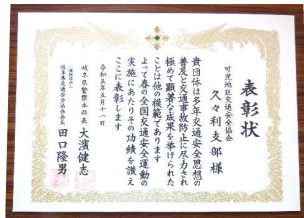 表彰状
可児地区交通安全協会
久々利支部様
貴団体は多年交通安全思想の
普及と交通事故防止に尽力され
極めて顕著な成果を挙げられた
ことは他の模範であります
よって春の全国交通安全運動の
実施にあたりその功績を讃え
ここに表彰します
令和五年五月十一日
岐阜県警察本部長 大濱健志
岐阜県交通安全協会会長 田口隆男